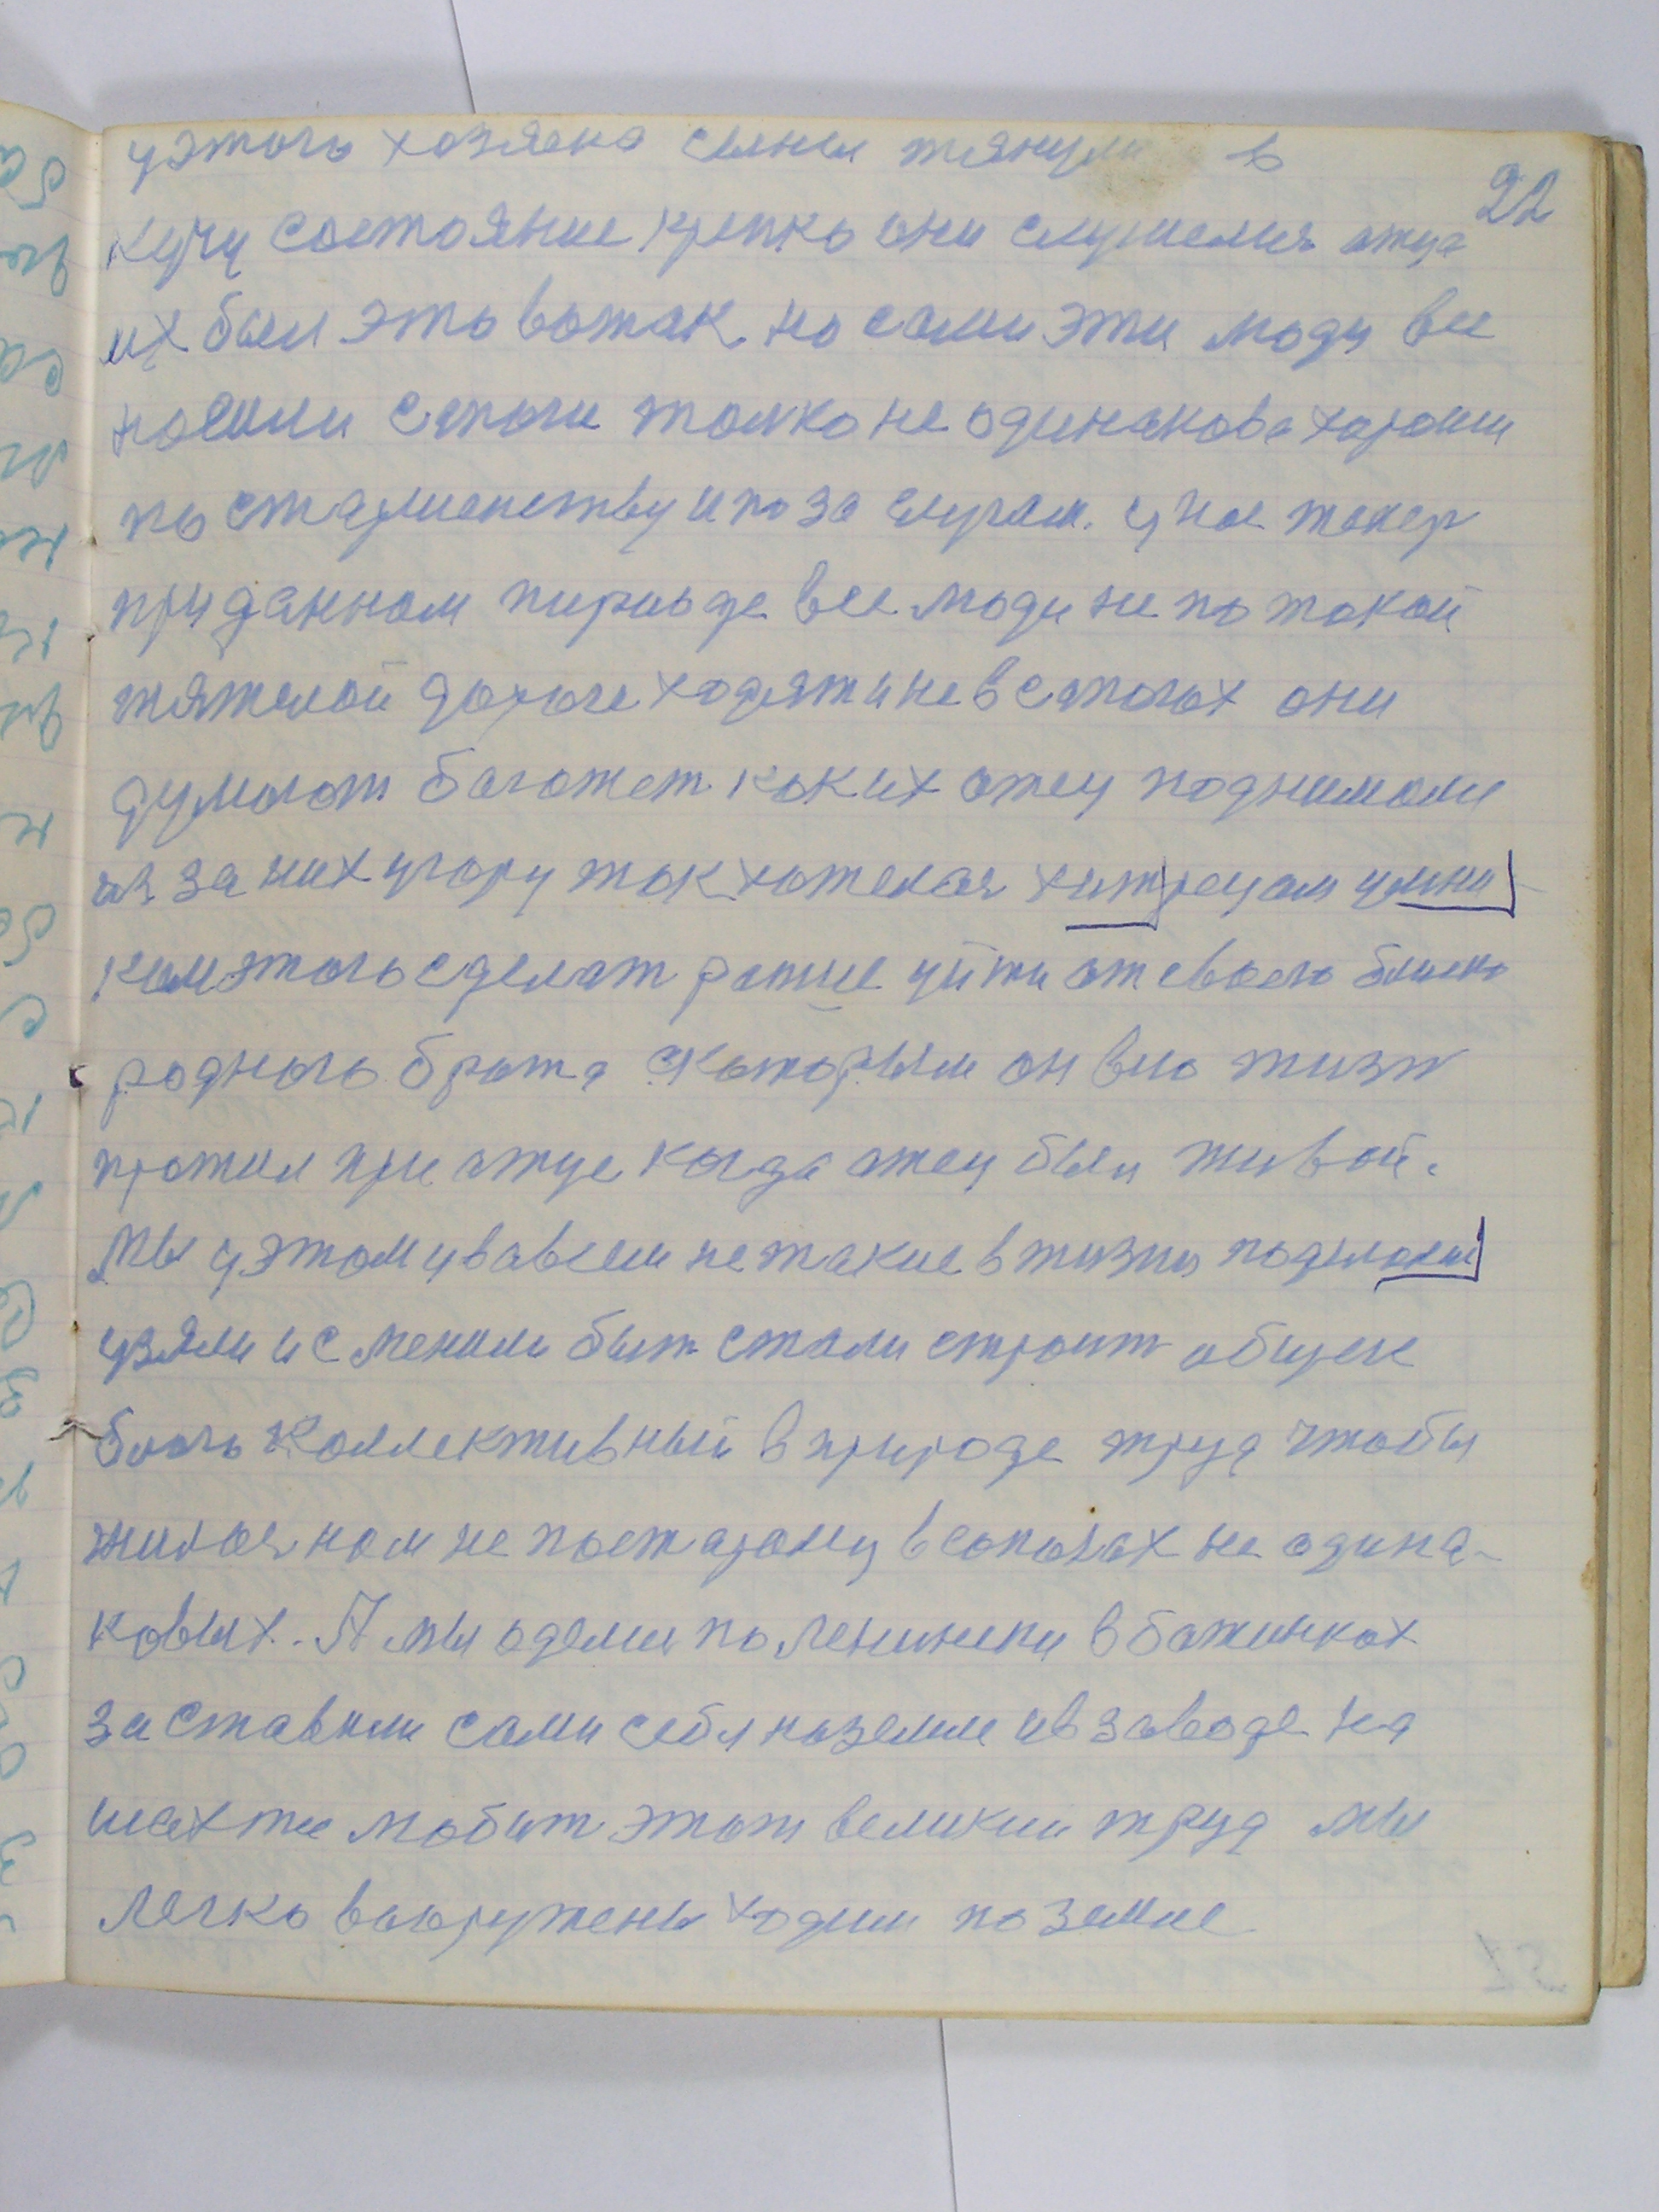 уэтого хозяена сыны тянули в
22
кучу состояние крепко они слушелися отца
их был это вожак. но сами эти люди все
носили сапоги толко не одинакова харошии
по старшенству и по за слугам. у нас тепер
при данном пириоде все люди не по такой
тяжелой дороге ходят и не в сапогах они
думают багажет как их отец поднимали
ся за них угору так хотелося хитрецам умни
кам этого сделат ранше уйти от своего близко
родного брата с которым он всю жизн
прожил при отце когда отец был живой.
Мы уэтому вавсем не такие в жизни подел
узяли и сменили быт стали строит общее
благо Коллективный в природе труд чтобы
жилося нам не постарому в сапогах не одина-
ковых. А мы одели по ленински в бажинках
заставили сами себя на земле и в заводе на
шахте любит этот великий труд мы
легко вооружены ходим по земле